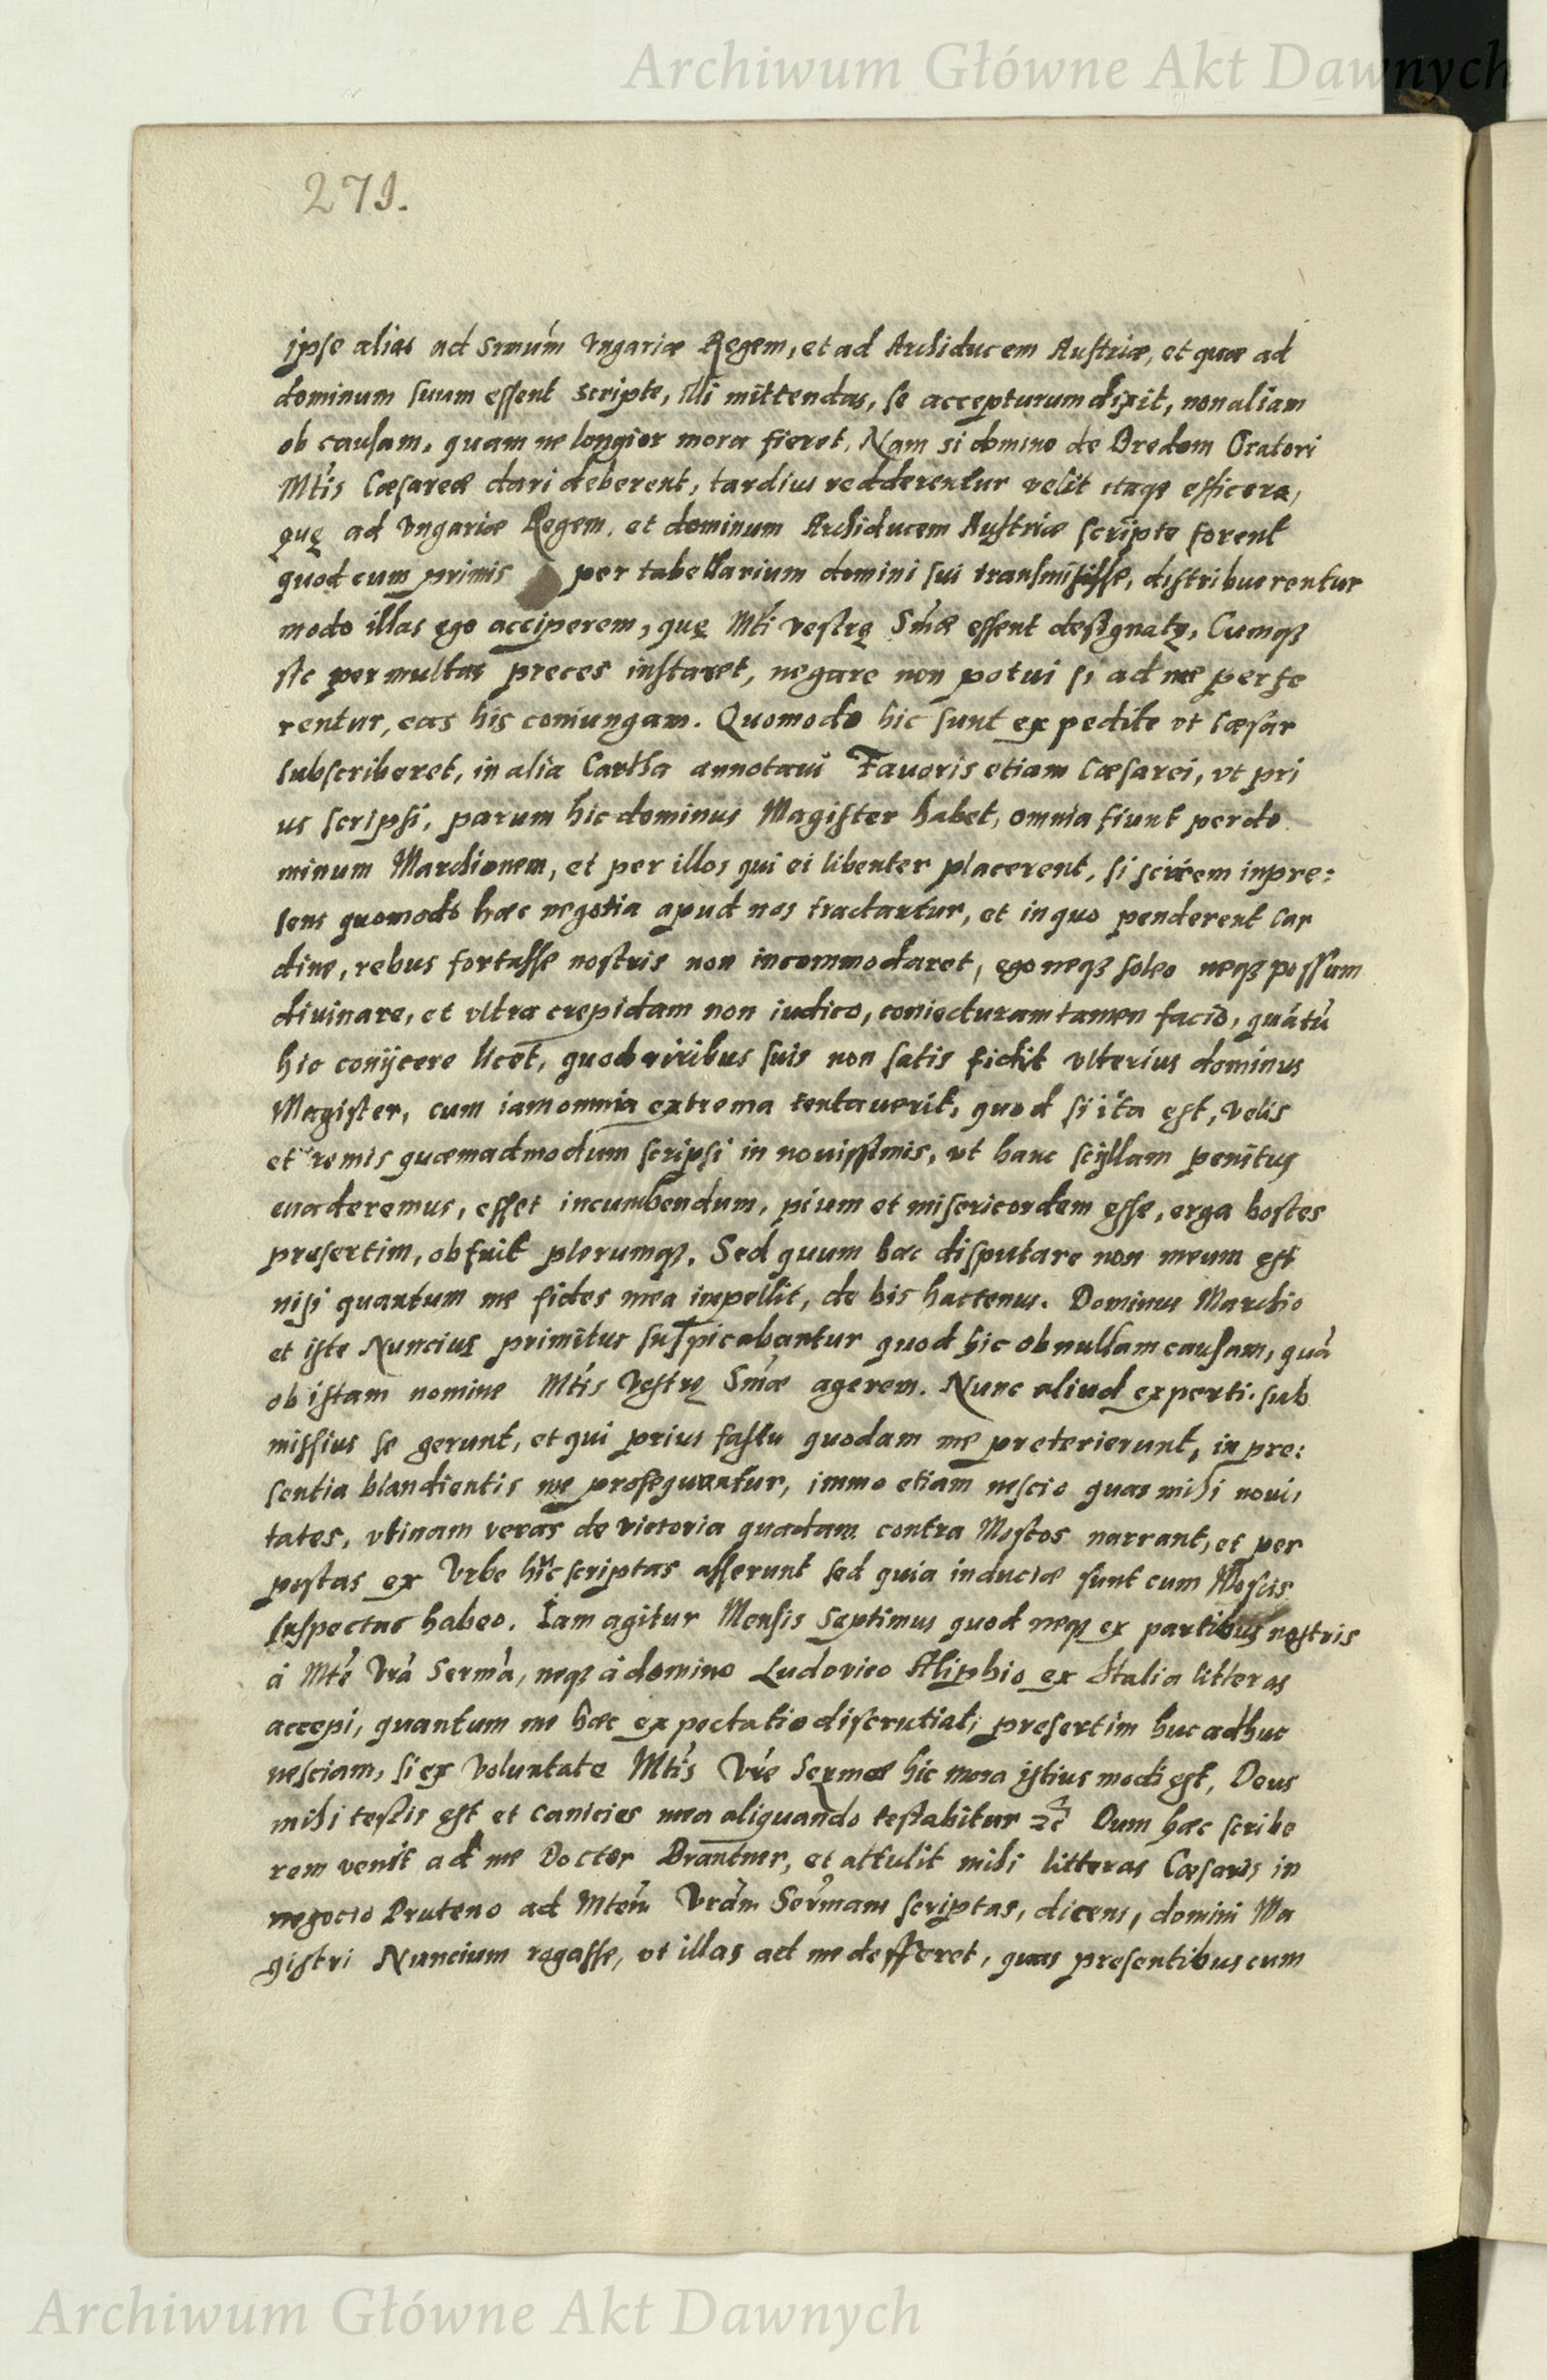 Archiwum Główne Akt Dawnych
271.
ipse alias ad Srmum Vngariæ Regem, et ad Archiducem Austriæ, et quæ ad
dominum suum essent scripte, illi mittendas, se accepturum dixit, non aliam
ob causam, quam ne longior mora fieret, Nam si domino de Bredam Oratori
Mtis Cæsareæ dari deberent, tardius redderentur velit itaqȝ efficere,
quę ad Vngariæ Regem, et dominum Archiducem Austriæ scripte forent
quod cum primis per tabellarium domini sui transmisisse, distribuerentur
modo illas ego acciperem, quę Mti vestrę Smæ essent designatę, Cumqȝ
sic per multas preces instaret, negare non potui si ad me perfe
rentur, eas his coniungam. Quomodo hic sunt expedite vt Cæsar
subscriberet, in alia Cartha annotaui Fauoris etiam Cæsarei, vt pri
us scripsi, parum hic dominus Magister habet, omnia fiunt per do
minum Marchionem, et per illos qui ei libenter placerent, si scirem in pre:
sens quomodo hæc negotia apud nos tractantur, et in quo penderent Car
dine, rebus fortasse nostris non incommodaret, ego neqȝ soleo neqȝ possum
diuinare, et vltra crepidam non iudico, coniecturam tamen facio, quátú
hic coniicere licet, quod viribus suis non satis fidit vlterius dominus
Magister, cum iam omnia extrema tentauerit, quod si ita est, velis
et remis quæmadmodum scripsi in nouissimis, vt hanc scyllam penitus
euaderemus, esset incumbendum, pium et misericordem esse, erga hostes
presertim, obfuit plerumqȝ. Sed quum hæc disputare non meum est
nisi quantum me fides mea impellit, de his hactenus. Dominus Marchio
et iste Nuncius primitus suspicabantur quod hic ob nullam causam, quà
ob istam nomine Mtis Vestrę Smæ agerem. Nunc aliud experti. sub
missius se gerunt, et qui prius fastu quodam me preterierunt, in pre:
sentia blandientis me prosequuntur, immo etiam nescio quas mihi noui,
tates, vtinam veras de victoria quadam contra Moscos narrant, et per
postas ex Vrbe huc scriptas asserunt sed quia induciæ sunt cum Moscis
suspectas habeo. Iam agitur Mensis Septimus quod neqȝ ex partibus nostris
á Mte Vrà Sermà, neqȝ á domino Ludovico Aliphio ex Italia litteras
accepi, quantum me hæc expectatio discrutiat, presertim huc adhuc
nesciam, si ex voluntate Mtis Vre Sermæ hic mora istius modi est, Deus
mihi testis est et canicies mea aliquando testabitur etc Dum hæc scribe
rem venit ad me Doctor Brantner, et attulit mihi litteras Cæsaris in
negocio Pruteno ad Mtem Vràm Sermam scriptas, dicens, domini Ma
gistri Nuncium rogasse, vt illas ad me defferet, quas presentibus cum
Archiwum Główne Akt Dawnych